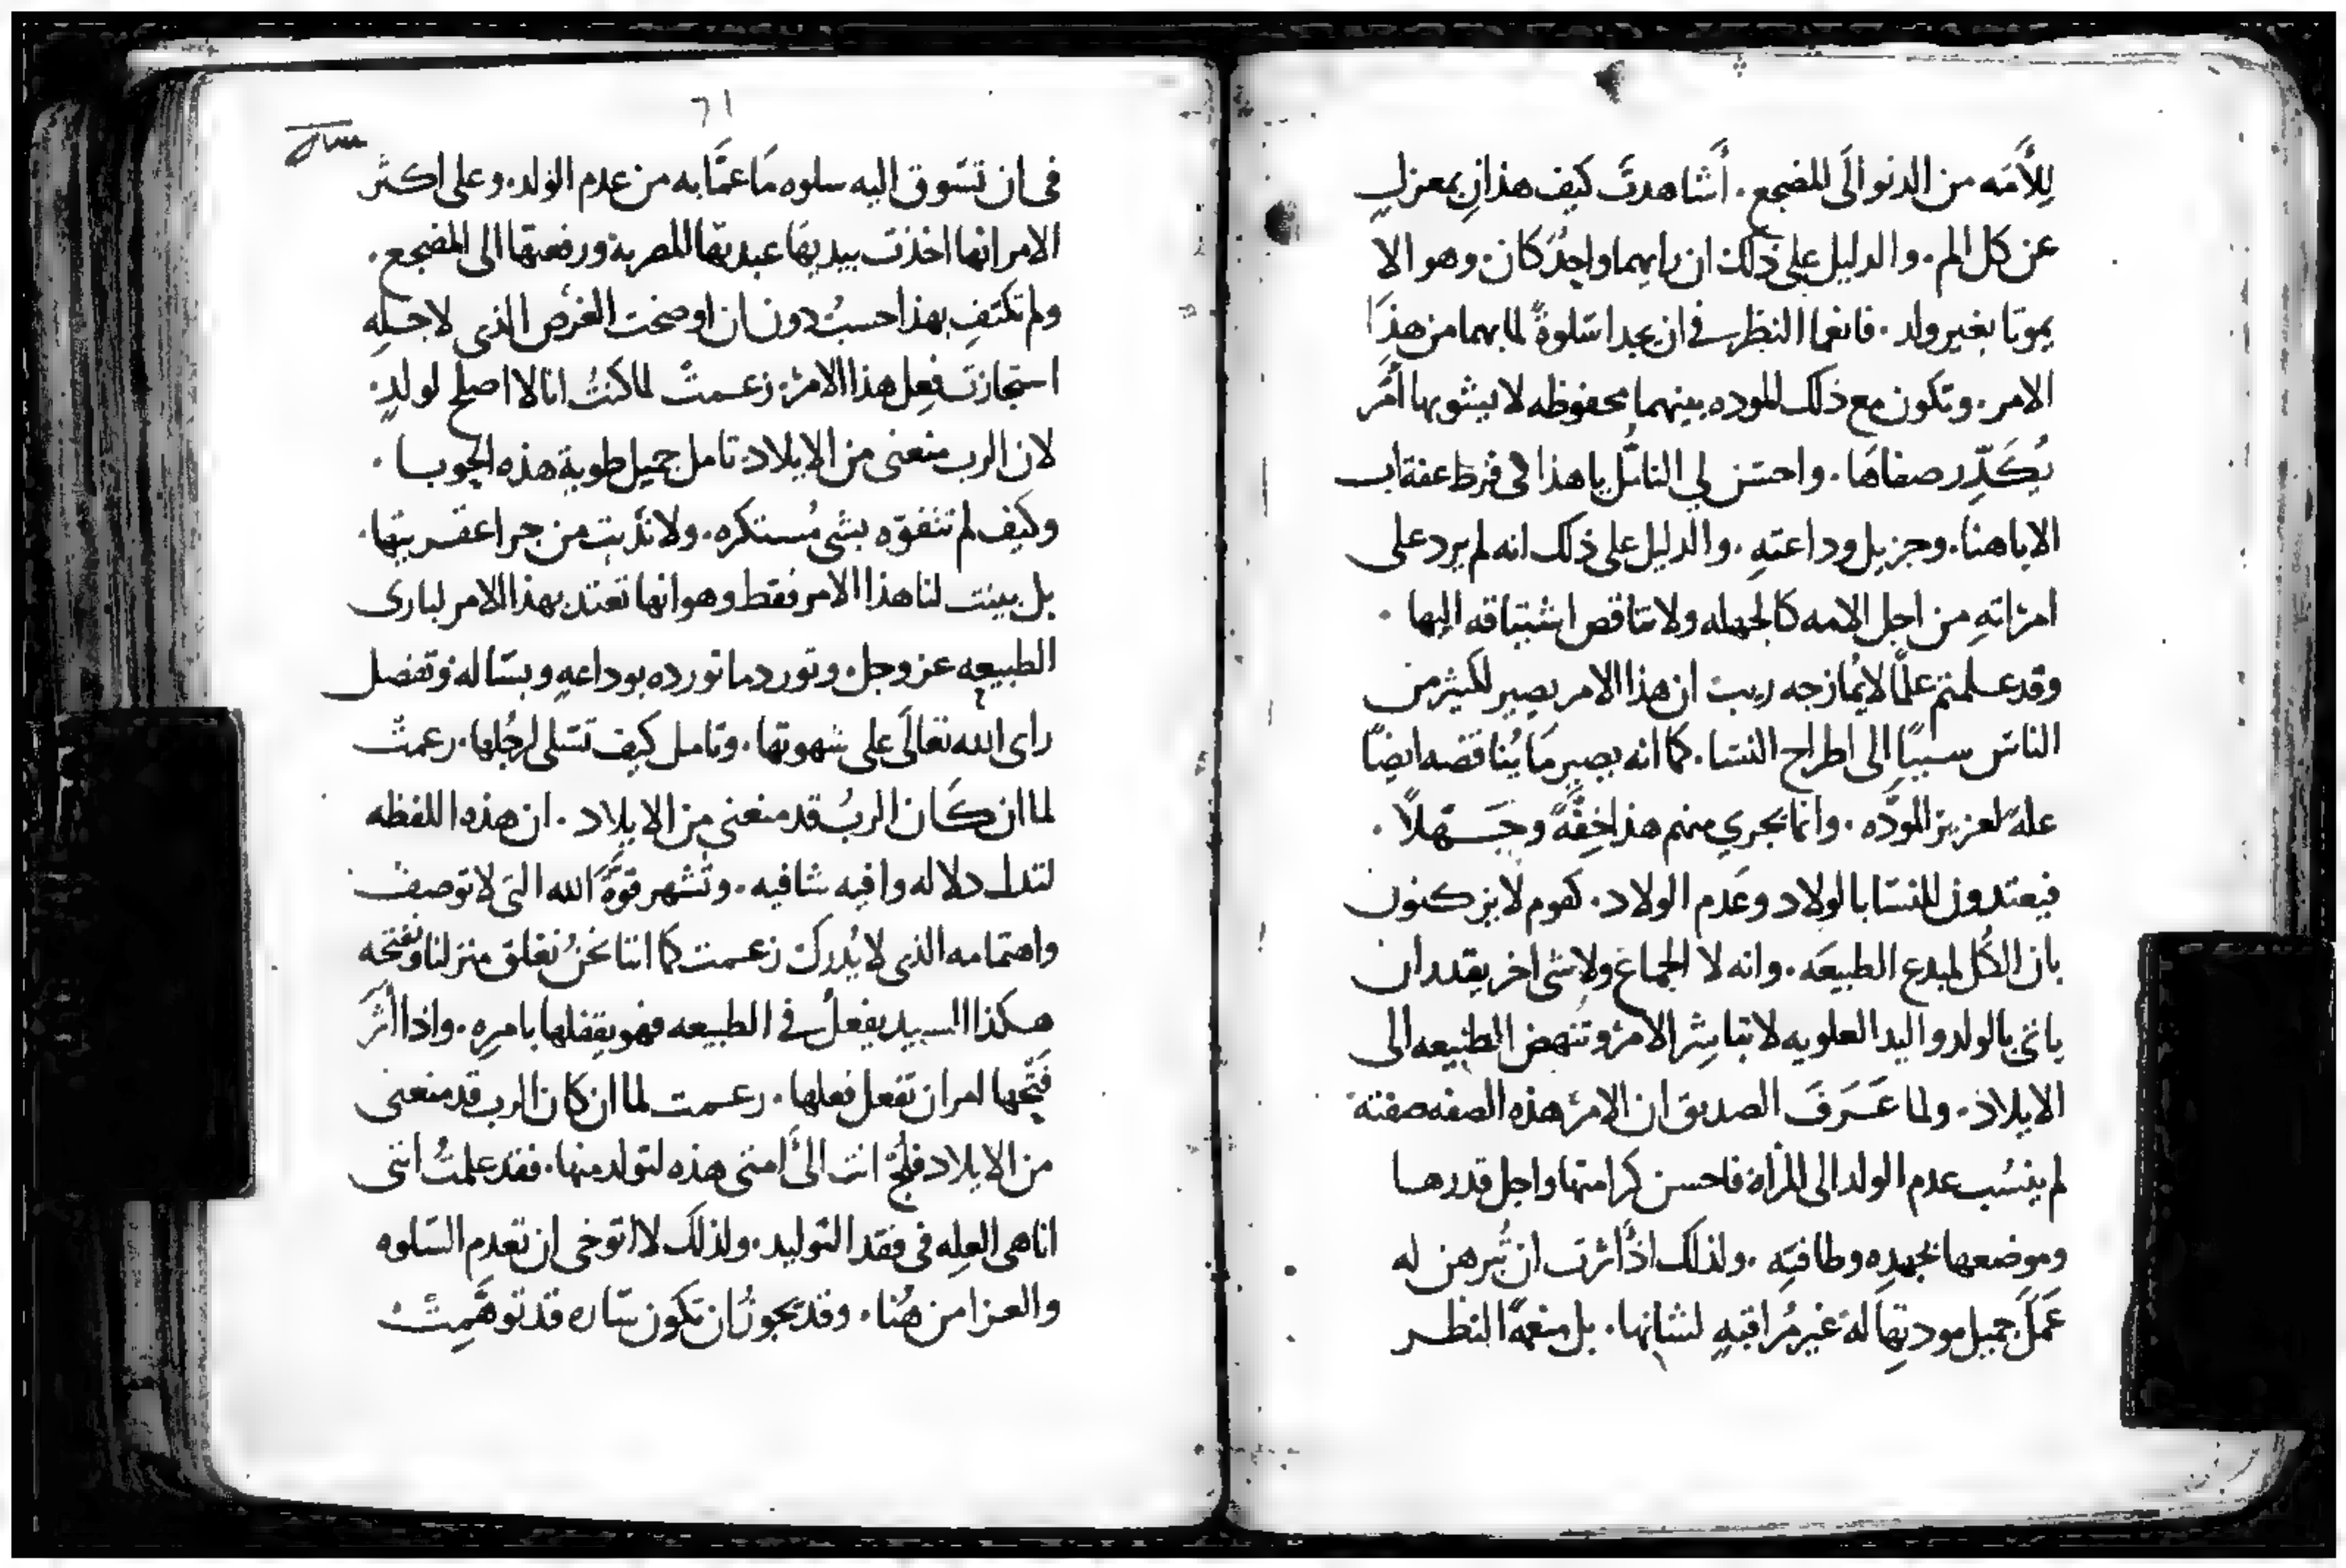 لِلأَمَه من الدنو الَى المضجع. أَشاهدتَ كيف هذانِ بمعزلٍ
عن كل الم. والدليل على ذلك ان رايهما واحِدٌ كان. وهو الا
يموتا بغير ولد. فانعما النظر في ان يجدا سَلوةً لما بهما من هذا
الامر. وتكون مع ذلك الموده بينهما محفوظه لا يشوبها أَمر
يُكَدِّر صفاهَا. واحسَن لي التامُّل يا هذا في فرط عفة اب
الابا هنا. وجزيل وداعتهِ. والدليل على ذلك انه لم يرد على
امرَاتهِ من اجل الامه كالجهله ولا تناقص اشتياقه اليها.
وقد علمتم علمًا لا يُمازجه ريب ان هذا الامر يصير لكثير من
الناس سببًا الى اطراح النسَا. كما انه يصير مَا يُناقضه ايضًا
علهً لعزيز المودَّه. وانما يجري منهم هذا خِفَّهً وجَهلاً.
فيعتدون للنسَا بالولاد وعَدم الولاد. كقوم لا يزكنون
بان الكُل لمبدع الطبيعَه. وانه لا الجماع ولا شي اخر يقدر ان
ياتي بالولد واليد العلويه لا تباشر الامر وتنهض الطبيعه الى
الايلاد. ولما عَرَفَ الصديق ان الامر هذه الصفه صفته
لم ينسُب عدم الولد الى المراه فاحسن كرامتها واجل قدرها
وموضعها بجهدِه وطاقتِه. ولذلك اذ اثرت ان تُبرهن له
عَمَلَ جميل مودتِها لهَ غير مُراقبهٍ لشانها. بل منعمَّه النظر
٦١
فى ان تسَوق اليه سلوه مَا عمَّا به من عدم الوَلد. وعلى اكثر
الامر انها اخذت بيديها عبدتها المصرية ورفعتها الى المضجع.
ولم تكتفِ بهذا حسبُ دون ان اوضحت الغرَض الذى لاجلِه
استجازت فِعل هذا الامر. زعمتْ لما كنتُ انا لا اصلح لولدٍ.
لان الرب منعنى من الايلاد. تامل جميل طوية هذه الحوبا.
وكيف لم تتفوّه بشى مُستكره. ولا نَدَبت من جرا عقريتها.
بل بينت لنا هذا الامر فقط وهو انها تعتد بهذا الامر لبارى
الطبيعه عز وجل. وتورد ما تورده بوداعهٍ وبسَاله وتفضل
راى الله تعالَى على شهوتها. وتامل كيف تسَلى لرجُلها. زعمتْ
لما ان كَان الربُ قد منعنى من الايلاد. ان هذه اللفظه
لتدل دلاله وافيه شافيه. وتُشهر قوّةَ الله التى لا توصف
واهتمامه الذى لا يُدرك زعمت كما اننا نحنُ نغلق منزلنا ونفتحه
هكذا السيد يفعلُ في الطبيعه فهو يقفلها بامرِه. واذا أثَر
فَتْحها امر ان تفعل فعلها. زعمت لما ان كان الرب قد منعنى
من الايلاد فلجْ انت الىَ امتى هذه لتولد منها. فقد علمتُ اننى
انا هى العِله فى فقد التوليد. ولذلك لا اتوخى ان تعدم السَلوه
والعزا من هُنا. وقد يجوز ان تكون سَاره قد توهَّمتْ